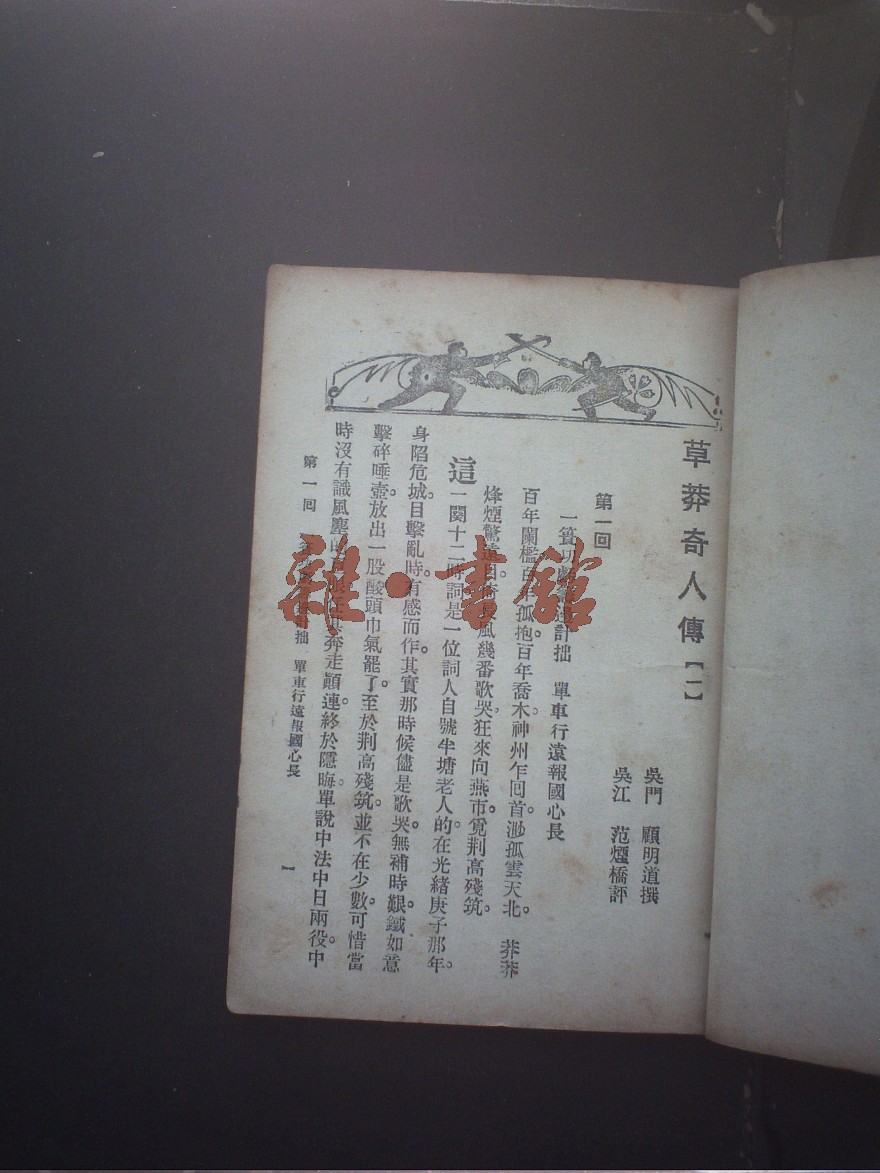 草莽奇人傳【一】
吳門 顧明道撰
吳江 范煙橋評
第一回
一簣功虧 計拙 單車行遠報國心長
百年闌檻百年孤抱。百年喬木。神州乍回首。渺孤雲天北。 莽莽
烽煙驚遠目。倚長風幾番歌哭。狂來向燕市。覓荆高殘筑。
這一闋十二時詞。是一位詞人自號半塘老人的。在光緒庚子那年。
身陷危城。目擊亂時。有感而作。其實那時候儘是歌哭。無補時艱。鐵如意
擊碎唾壺。放出一股酸頭巾氣罷了。至於荆高殘筑。並不在少數。可惜當
時沒有識風塵 奔走顚連。終於隱晦。單說中法中日兩役。中
第一回 計拙 單車行遠報國心長
一
雜·書館